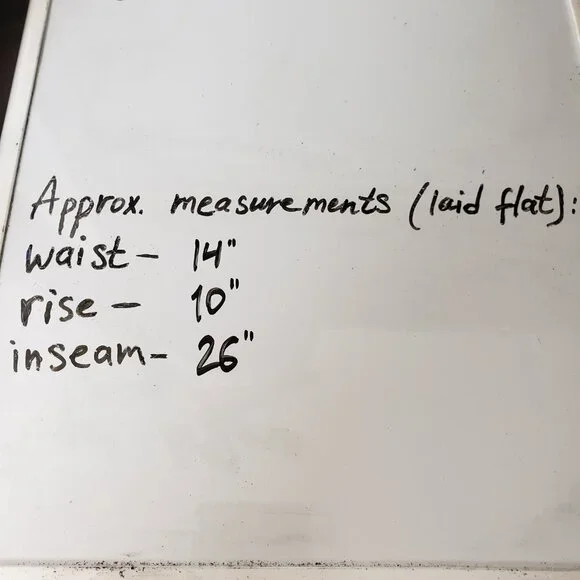 Approx. measurements (laid flat):
waist - 14"
rise - 10"
inseam - 26"